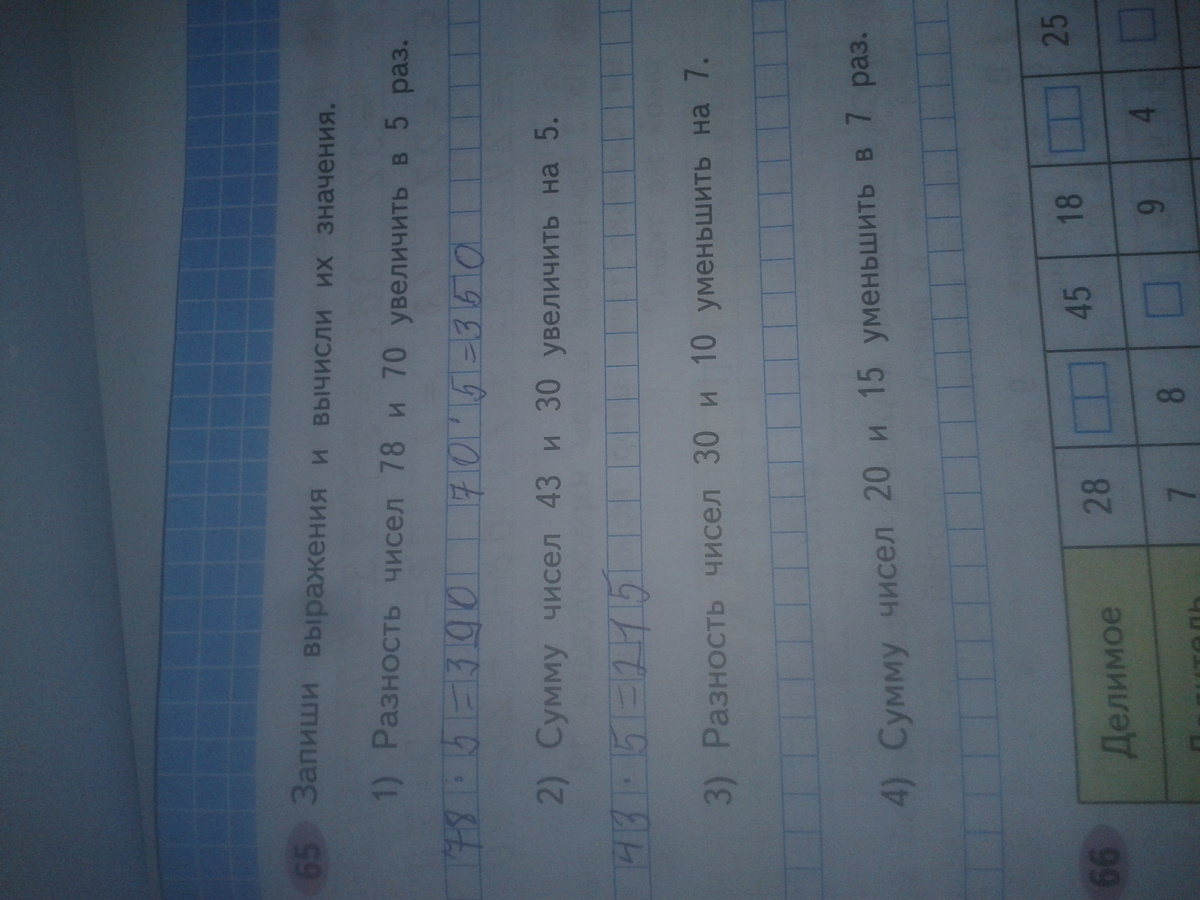 65 Запиши выражения и вычисли их значения.
1) Разность чисел 78 и 70 увеличить в 5 раз.
78 : 5 = 390 70 · 5 = 350
2) Сумму чисел 43 и 30 увеличить на 5.
43 · 5 = 215
3) Разность чисел 30 и 10 уменьшить на 7.
4) Сумму чисел 20 и 15 уменьшить в 7 раз.
66 Делимое 28 45 18 25
7 8 9 4